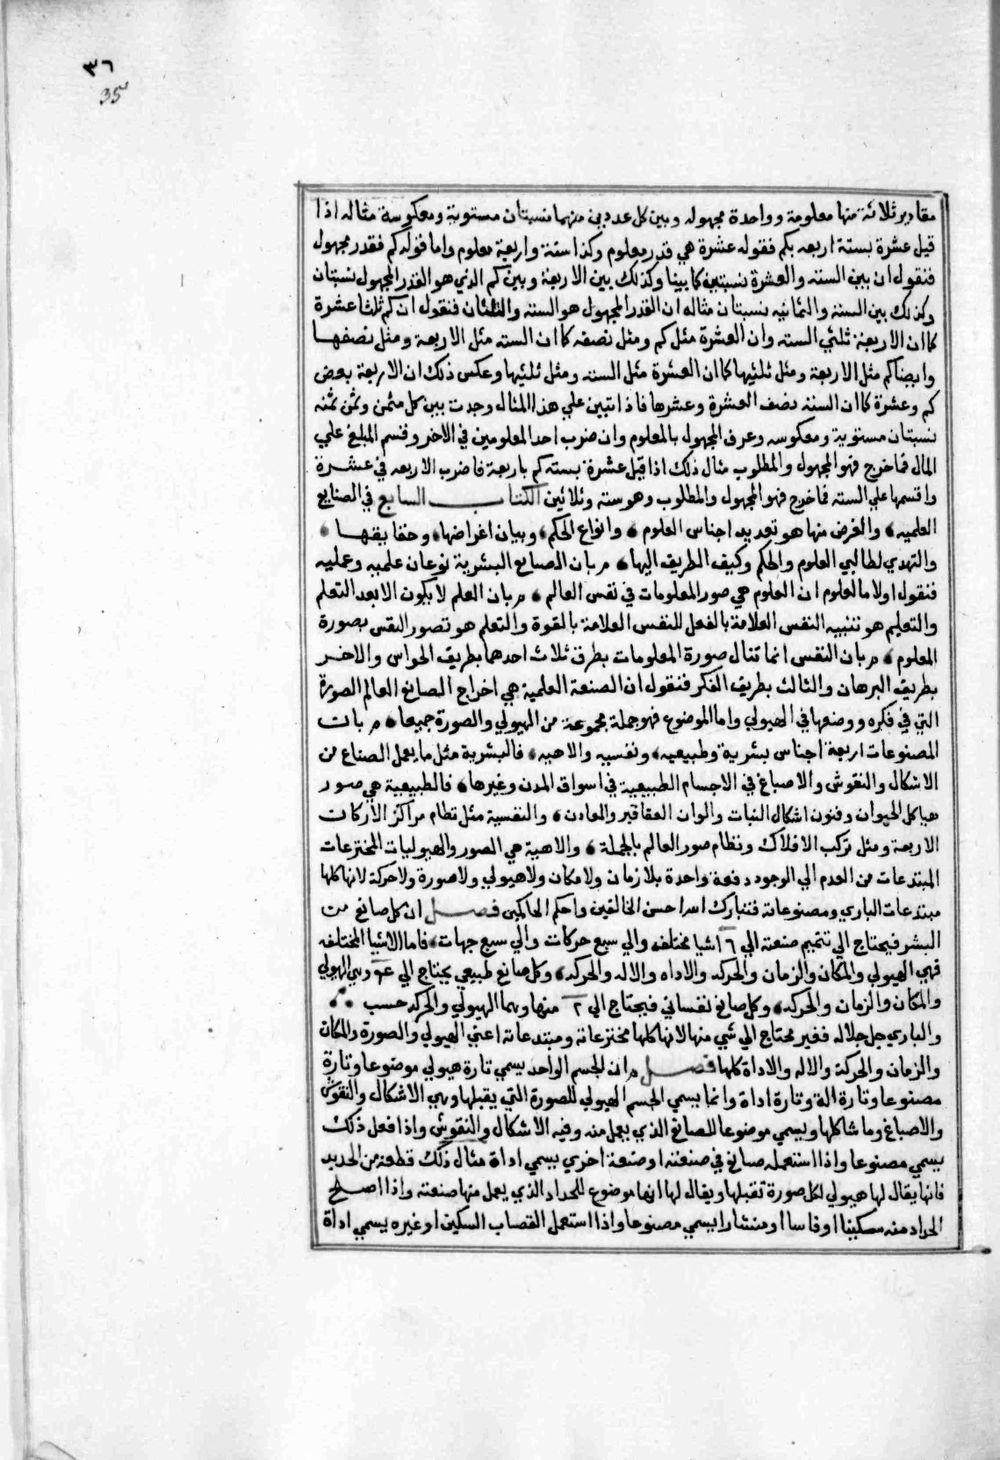 ٣٦
35
مقادير ثلاثة منها معلومة وواحدة مجهوله وبين كل عددين منهما نسبتان مستوية ومعكوسة مثاله اذا
قيل عشرة بستة اربعه بكم فقوله عشرة هي قدر معلوم وكذا ستة واربعة معلوم واما قوله كم فقدر مجهول
فنقول ان بين الستة والعشرة نسبتين كما بينا وكذلك بين الاربعة وبين كم الذي هو القدر المجهول نسبتان
وكذلك بين الستة والثمانيه نسبتان مثاله ان القدر المجهول هو الستة والثلثان فنقول ان كم ثلثا عشرة
كما ان الاربعة ثلثي الستة وان العشرة مثل كم ومثل نصفه كما ان الستة مثل الاربعة ومثل نصفها
وايضا كم مثل الاربعة ومثل ثلثيها كما ان العشرة مثل الستة ومثل ثلثيها وعكس ذلك ان الاربعة بعض
كم وعشرة كما ان الستة نصف العشرة وعشرها فاذا تبين علي هذا المثال وجدت بين كل مثمن وثمن ثمنه
نسبتان مستوية ومعكوسه وعرف المجهول بالمعلوم وان ضرب احد المعلومين في الاخر وقسم المبلغ علي
المال فما خرج فهو المجهول والمطلوب مثال ذلك اذا قيل عشرة بسته كم باربعة فاضرب الاربعه في عشرة
واقسمها علي السته فما خرج فهو المجهول والمطلوب وهو سته وثلاثين الكتاب السابع في الصنايع
العلميه والغرض منها هو تعديد اجناس العلوم وانواع الحكم وبيان اغراضها وحقايقها
والتهدي لطالبي العلوم والحكم وكيف الطريق اليها م بان الصنايع البشرية نوعان علميه وعمليه
فنقول اولا ما العلوم ان العلوم هي صور المعلومات في نفس العالم م بان العلم لا يكون الا بعد التعلم
والتعليم هو تنبيه النفس العلامة بالفعل للنفس العلامة بالقوة والتعلم هو تصور النفس بصورة
المعلوم م بان النفس انما تنال صورة المعلومات بطرق ثلاث احدهما بطريق الحواس والاخر
بطريق البرهان والثالث بطريق الفكر فنقول ان الصنعة العلمية هي اخراج الصانع العالم الصورة
التي في فكره ووضعها في الهيولي واما الموضوع فهو جملة مجموعة من الهيولي والصورة جميعا م بان
المصنوعات اربعة اجناس بشرية وطبيعيه ونفسيه والاهيه فالبشرية مثل ما يعمل الصناع من
الاشكال والنقوش والاصباغ في الاجسام الطبيعية في اسواق المدن وغيرها فالطبيعية هي صور
هياكل الحيوان وفنون اشكال النبات والوان العقاقير والمعادن والنفسية مثل نظام مراكز الاركان
الاربعة ومثل تركب الافلاك ونظام صور العالم بالجملة والاهية هي الصور والهيوليات المخترعات
المبتدعات من العدم الي الوجود دفعة واحدة بلا زمان ولا مكان ولا هيولي ولا صورة ولا حركة لانها كلها
مبتدعات الباري ومصنوعاته فتبارك الله احسن الخالقين واحكم الحاكمين فصل ان كل صانع من
البشر فيحتاج الي تتميم صنعته الي ٦ اشيا مختلفه والي سبع حركات والي سبع جهات فاما الاشيا المختلفه
فهي الهيولي والمكان والزمان والحركه والاداه والاله والحركه وكل صانع طبيعي يحتاج الي ٤ وهي الهيولي
والمكان والزمان والحركه وكل صانع نفساني فيحتاج الي ٢ منها وهما الهيولي والحركه حسب
والباري جل جلاله فغير محتاج الي شي منها لانها كلها مخترعاته ومبتدعاته اعني الهيولي والصورة والمكان
والزمان والحركة والاله والاداة كلها فصل م ان الجسم الواحد يسمي تارة هيولي موضوعا وتارة
مصنوعا وتارة الة وتارة اداة وانما يسمي الجسم الهيولي للصورة التي يقبلها وهي الاشكال والنقوش
والاصباغ وما شاكلها ويسمي موضوعا للصانع الذي يعمل منه وفيه الاشكال والنقوش واذا فعل ذلك
يسمي مصنوعا واذا استعمله صانع في صنعته او صنعة اخري يسمي اداة مثال ذلك قطعة من الحديد
فانها يقال لها هيولي لكل صورة تقبلها ويقال لها انها موضوع للحداد الذي يعمل منها صنعته واذا اصلح
الحداد منه سكينا او فاسا او منشارا يسمي مصنوعا واذا استعمل القصاب السكين او غيره يسمي اداة